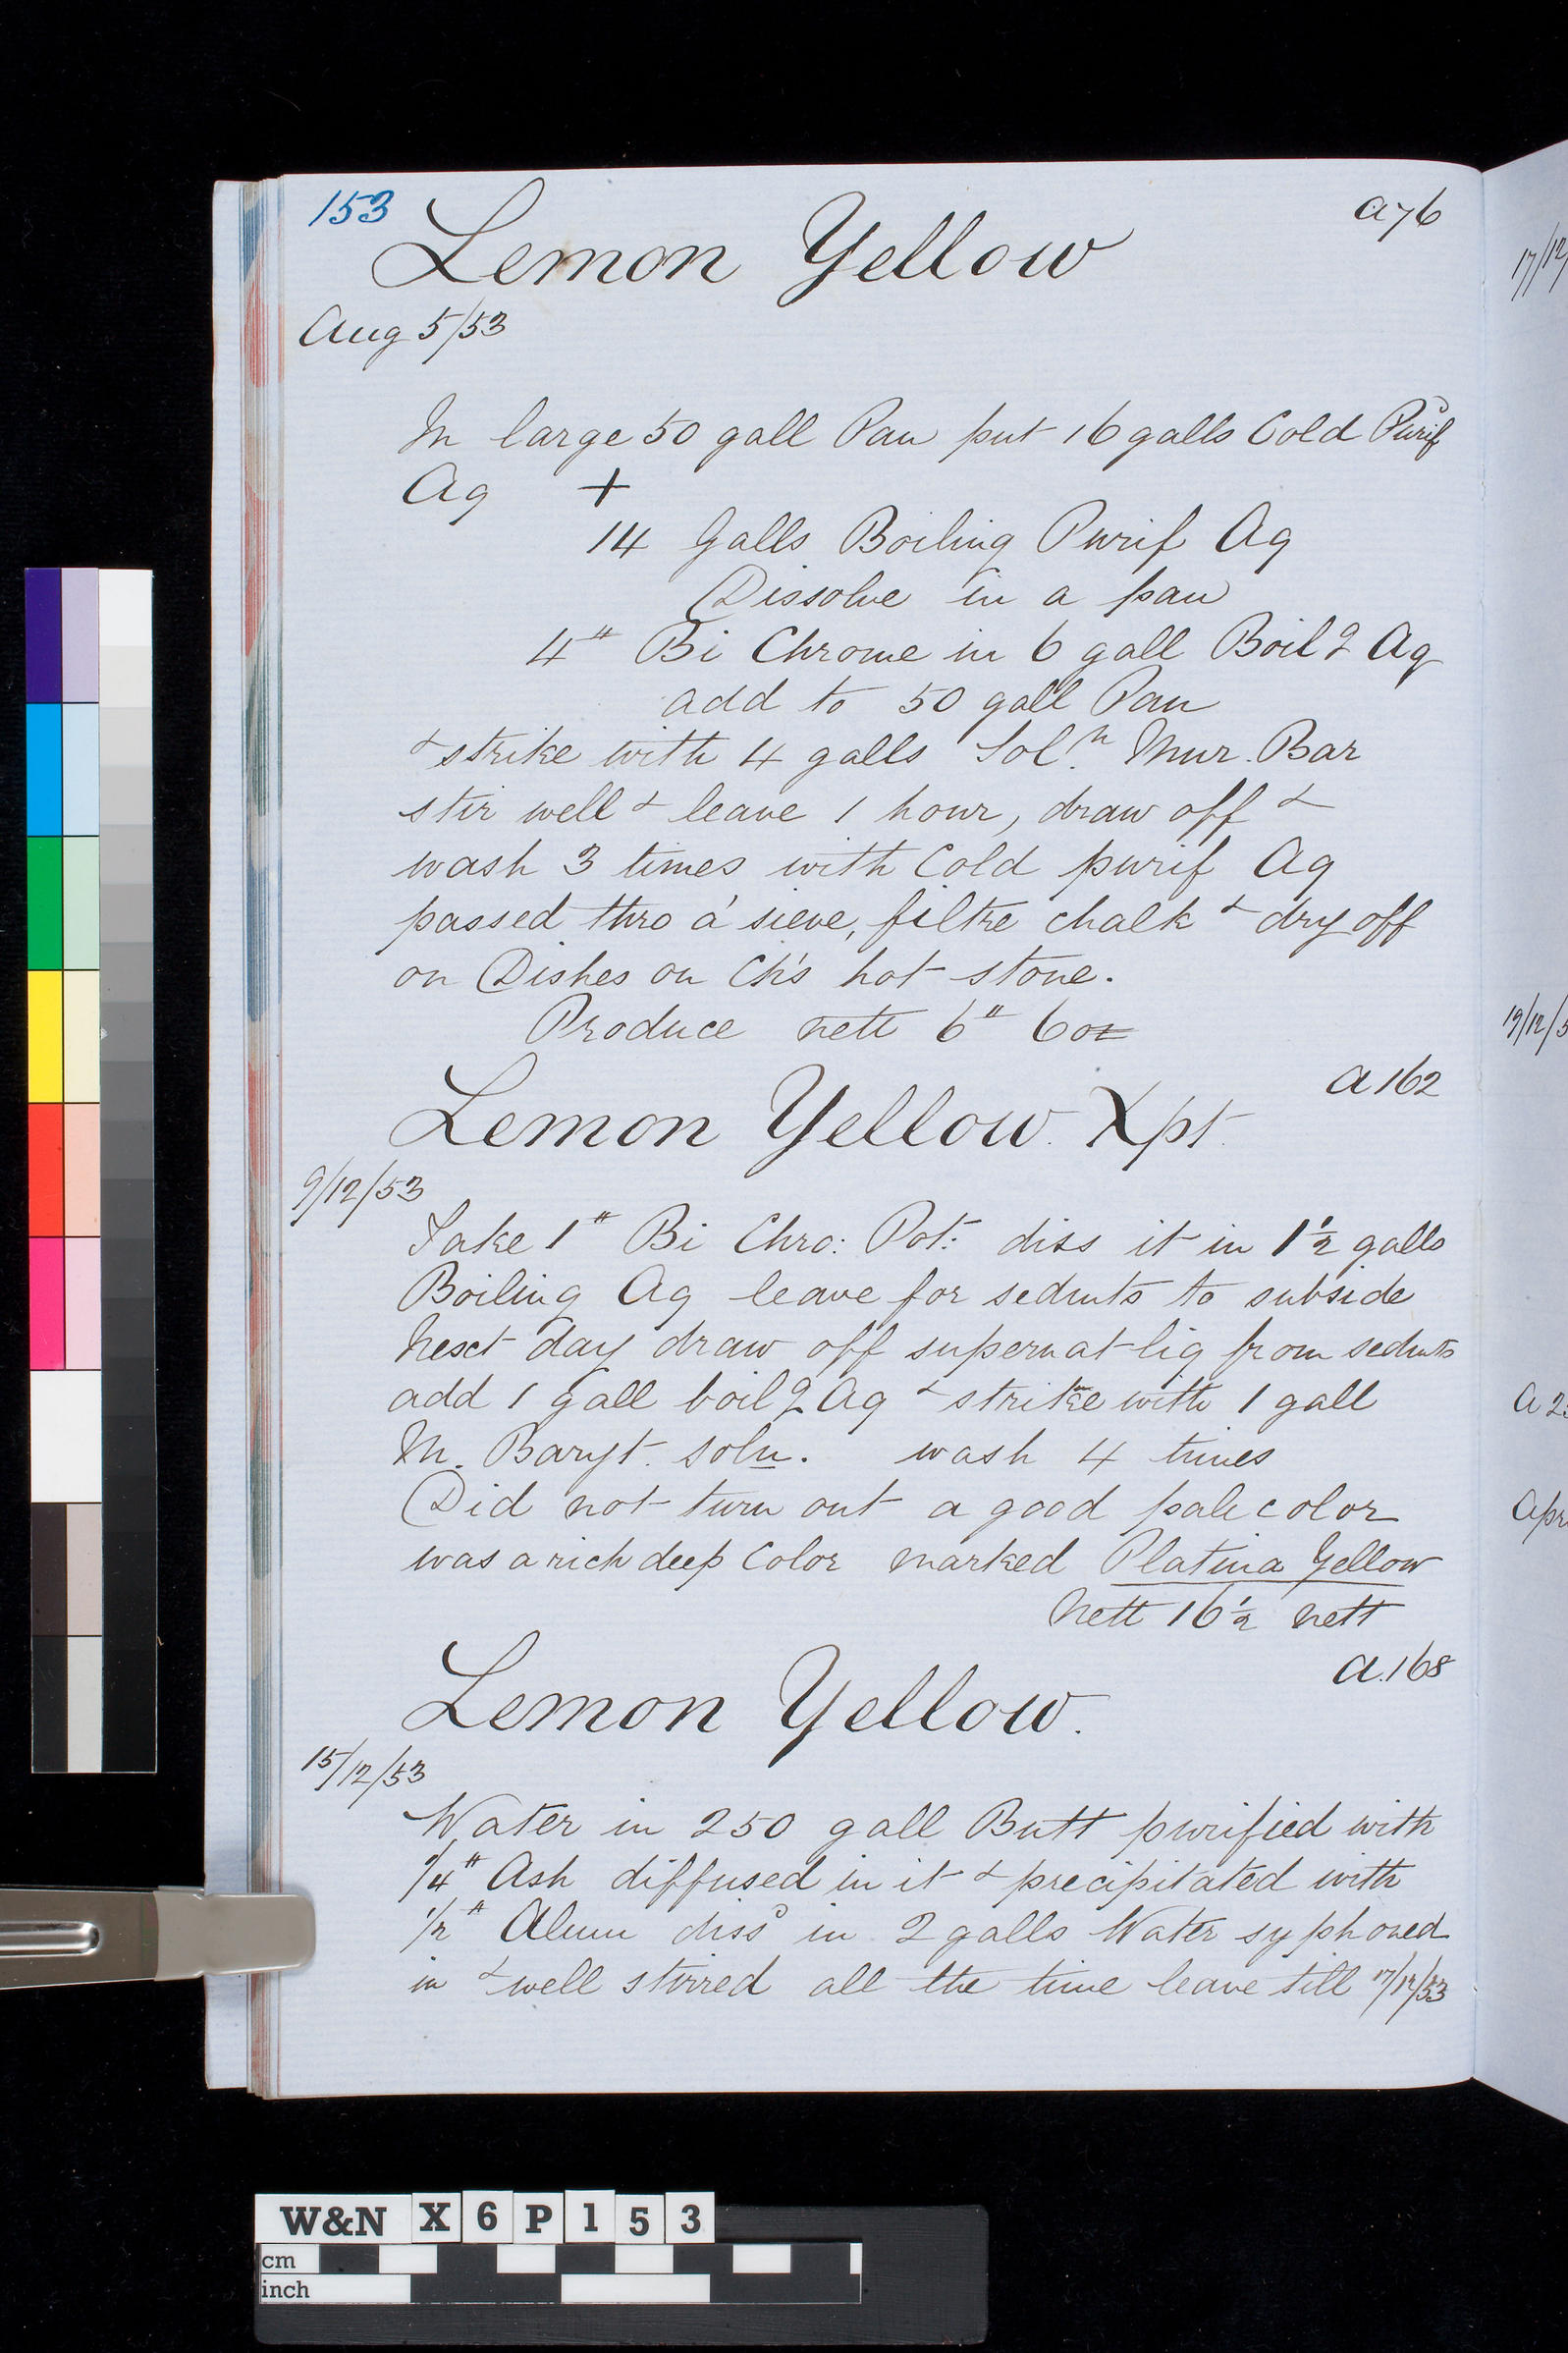 153
a76
Lemon Yellow
Aug 5/53
In large 50 gall Pan put 16 galls Cold Purif
Aq +
14 Galls Boiling Purif Aq
Dissolve in a pan
4# Bi Chrome in 6 gall Boilg Aq
add to 50 gall Pan
& strike with 4 galls Soln. Mur. Bar
stir well & leave 1 hour, draw off &
wash 3 times with Cold purif Aq
passed thro a sieve, filtre chalk & dry off
on Dishes on Ch's hot stone.
Produce nett 6# 6oz
a162
Lemon Yellow. Xpt.
9/12/53
Take 1# Bi Chro: Pot: diss it in 1½ galls
Boiling Aq leave for sedmts to subside
Next day draw off supernat liq from sedmts
add 1 gall boilg Aq & strike with 1 gall
M. Baryt. soln. wash 4 times
Did not turn out a good pale color
was a rich deep Color marked Platina Yellow
Nett 16½ nett
a.168
Lemon Yellow.
15/12/53
Water in 250 gall Butt purified with
1/4# Ash diffused in it & precipitated with
1/2# Alum diss in 2 galls Water syphoned
in & well stirred all the time leave till 17/12/53
17/12/
19/12/5
a 2
Apr
W&N X6P153
cm
inch